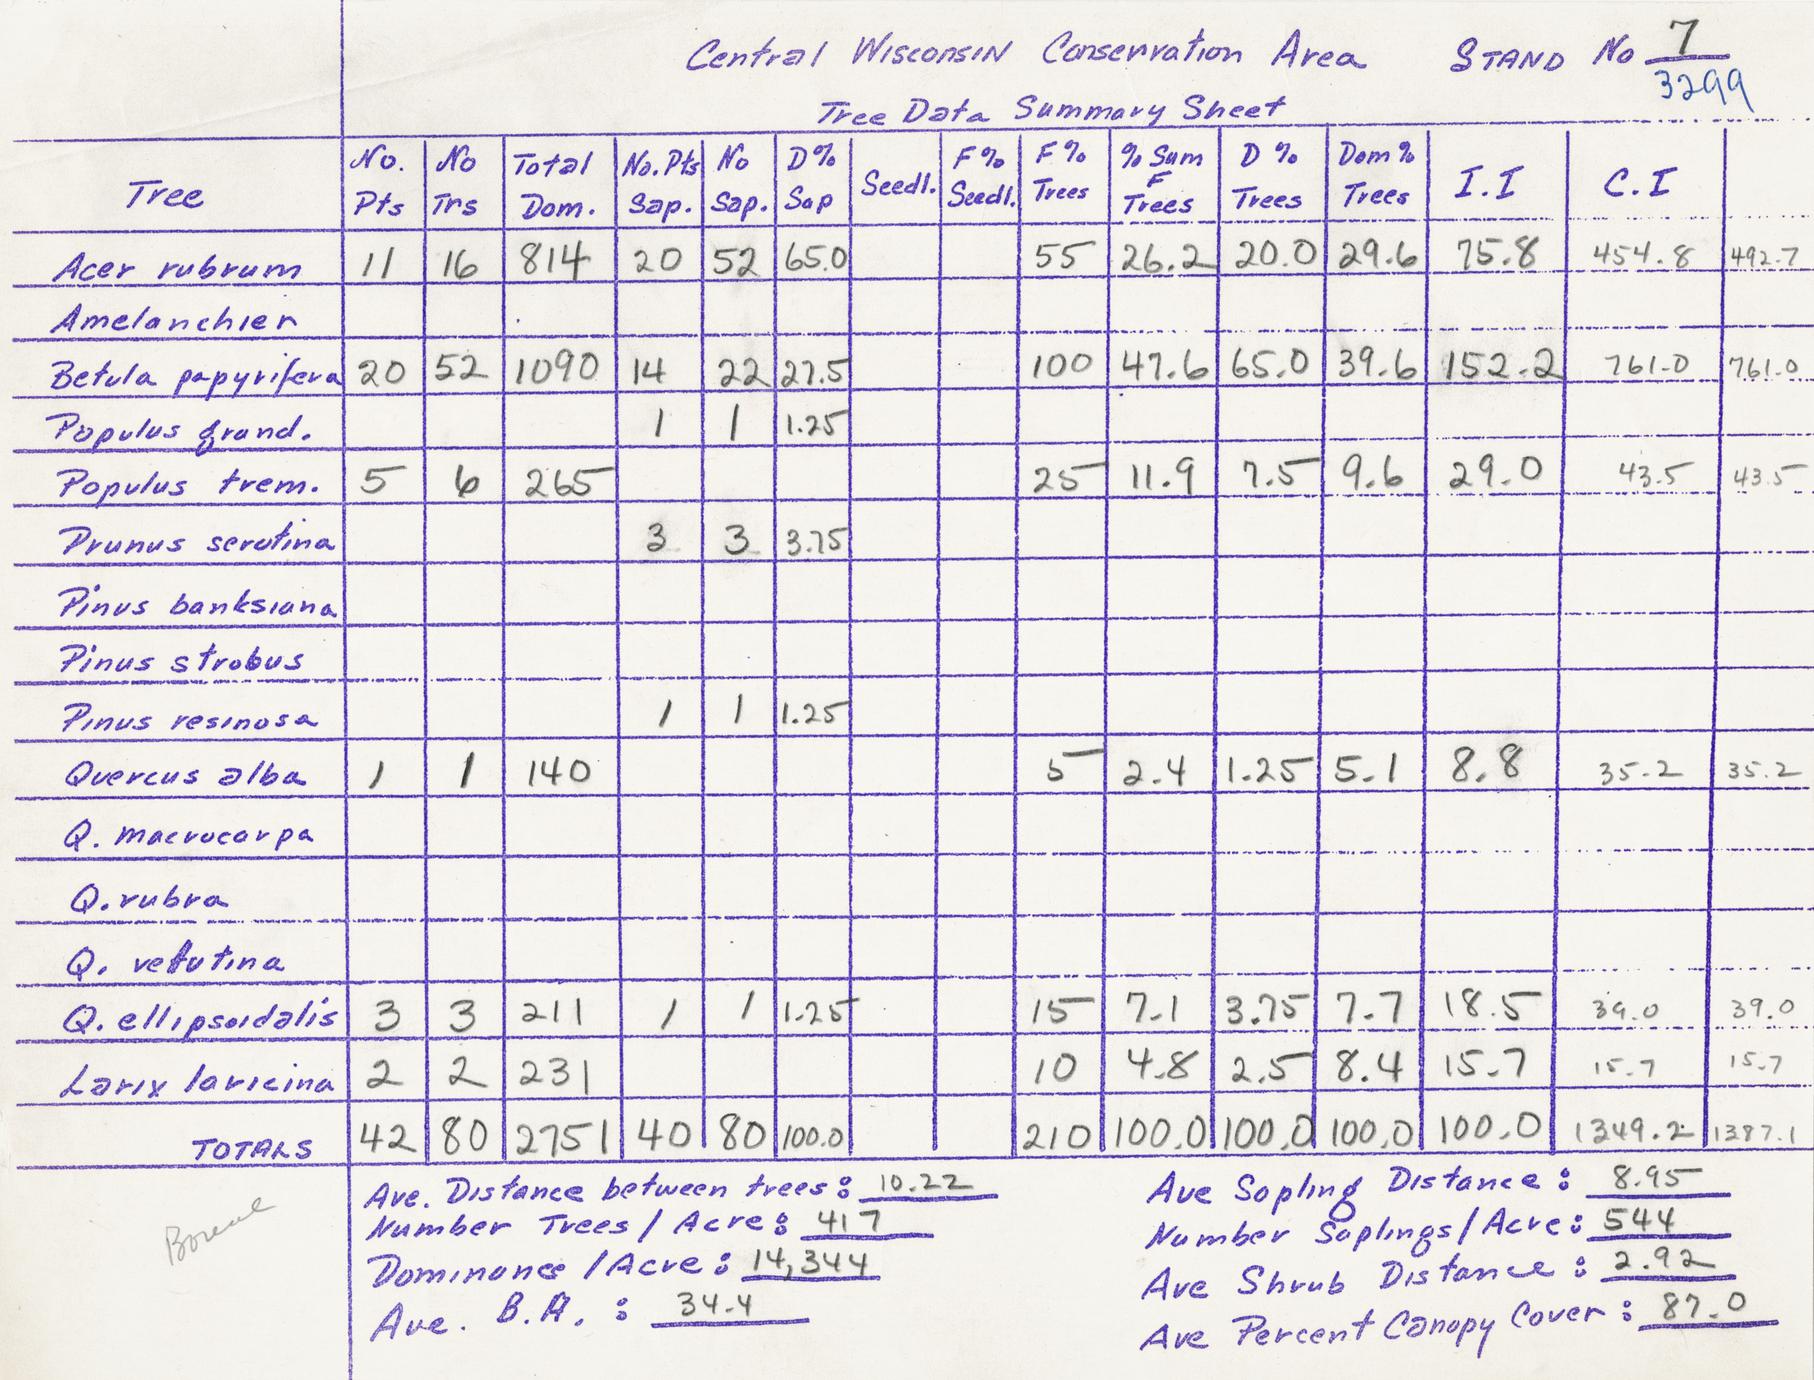 Central Wisconsin Conservation Area STAND No 7
3299
Tree Data Summary Sheet
Tree No. Pts No Trs Total Dom. No. Pts Sap. No Sap. D% Sap Seedl. F% Seedl. F% Trees % Sum F Trees D % Trees Dom % Trees I.I C.I
Acer rubrum 11 16 814 20 52 65.0 55 26.2 20.0 29.6 75.8 454.8 492.7
Amelanchier
Betula papyrifera 20 52 1090 14 22 27.5 100 47.6 65.0 39.6 152.2 761.0 761.0
Populus grand. 1 1 1.25
Populus trem. 5 6 265 25 11.9 7.5 9.6 29.0 43.5 43.5
Prunus serotina 3 3 3.75
Pinus banksiana
Pinus strobus
Pinus resinosa 1 1 1.25
Quercus alba 1 1 140 5 2.4 1.25 5.1 8.8 35.2 35.2
Q. macrocarpa
Q. rubra
Q. velutina
Q. ellipsoidalis 3 3 211 1 1 1.25 15 7.1 3.75 7.7 18.5 39.0 39.0
Larix laricina 2 2 231 10 4.8 2.5 8.4 15.7 15.7 15.7
TOTALS 42 80 2751 40 80 100.0 210 100.0 100.0 100.0 100.0 1349.2 1387.1
Ave. Distance between trees: 10.22 Ave Sapling Distance: 8.95
Number Trees / Acre: 417 Number Saplings / Acre: 544
Dominance / Acre: 14,344 Ave Shrub Distance: 2.92
Ave. B.A. : 34.4 Ave Percent Canopy Cover: 87.0
Boreal